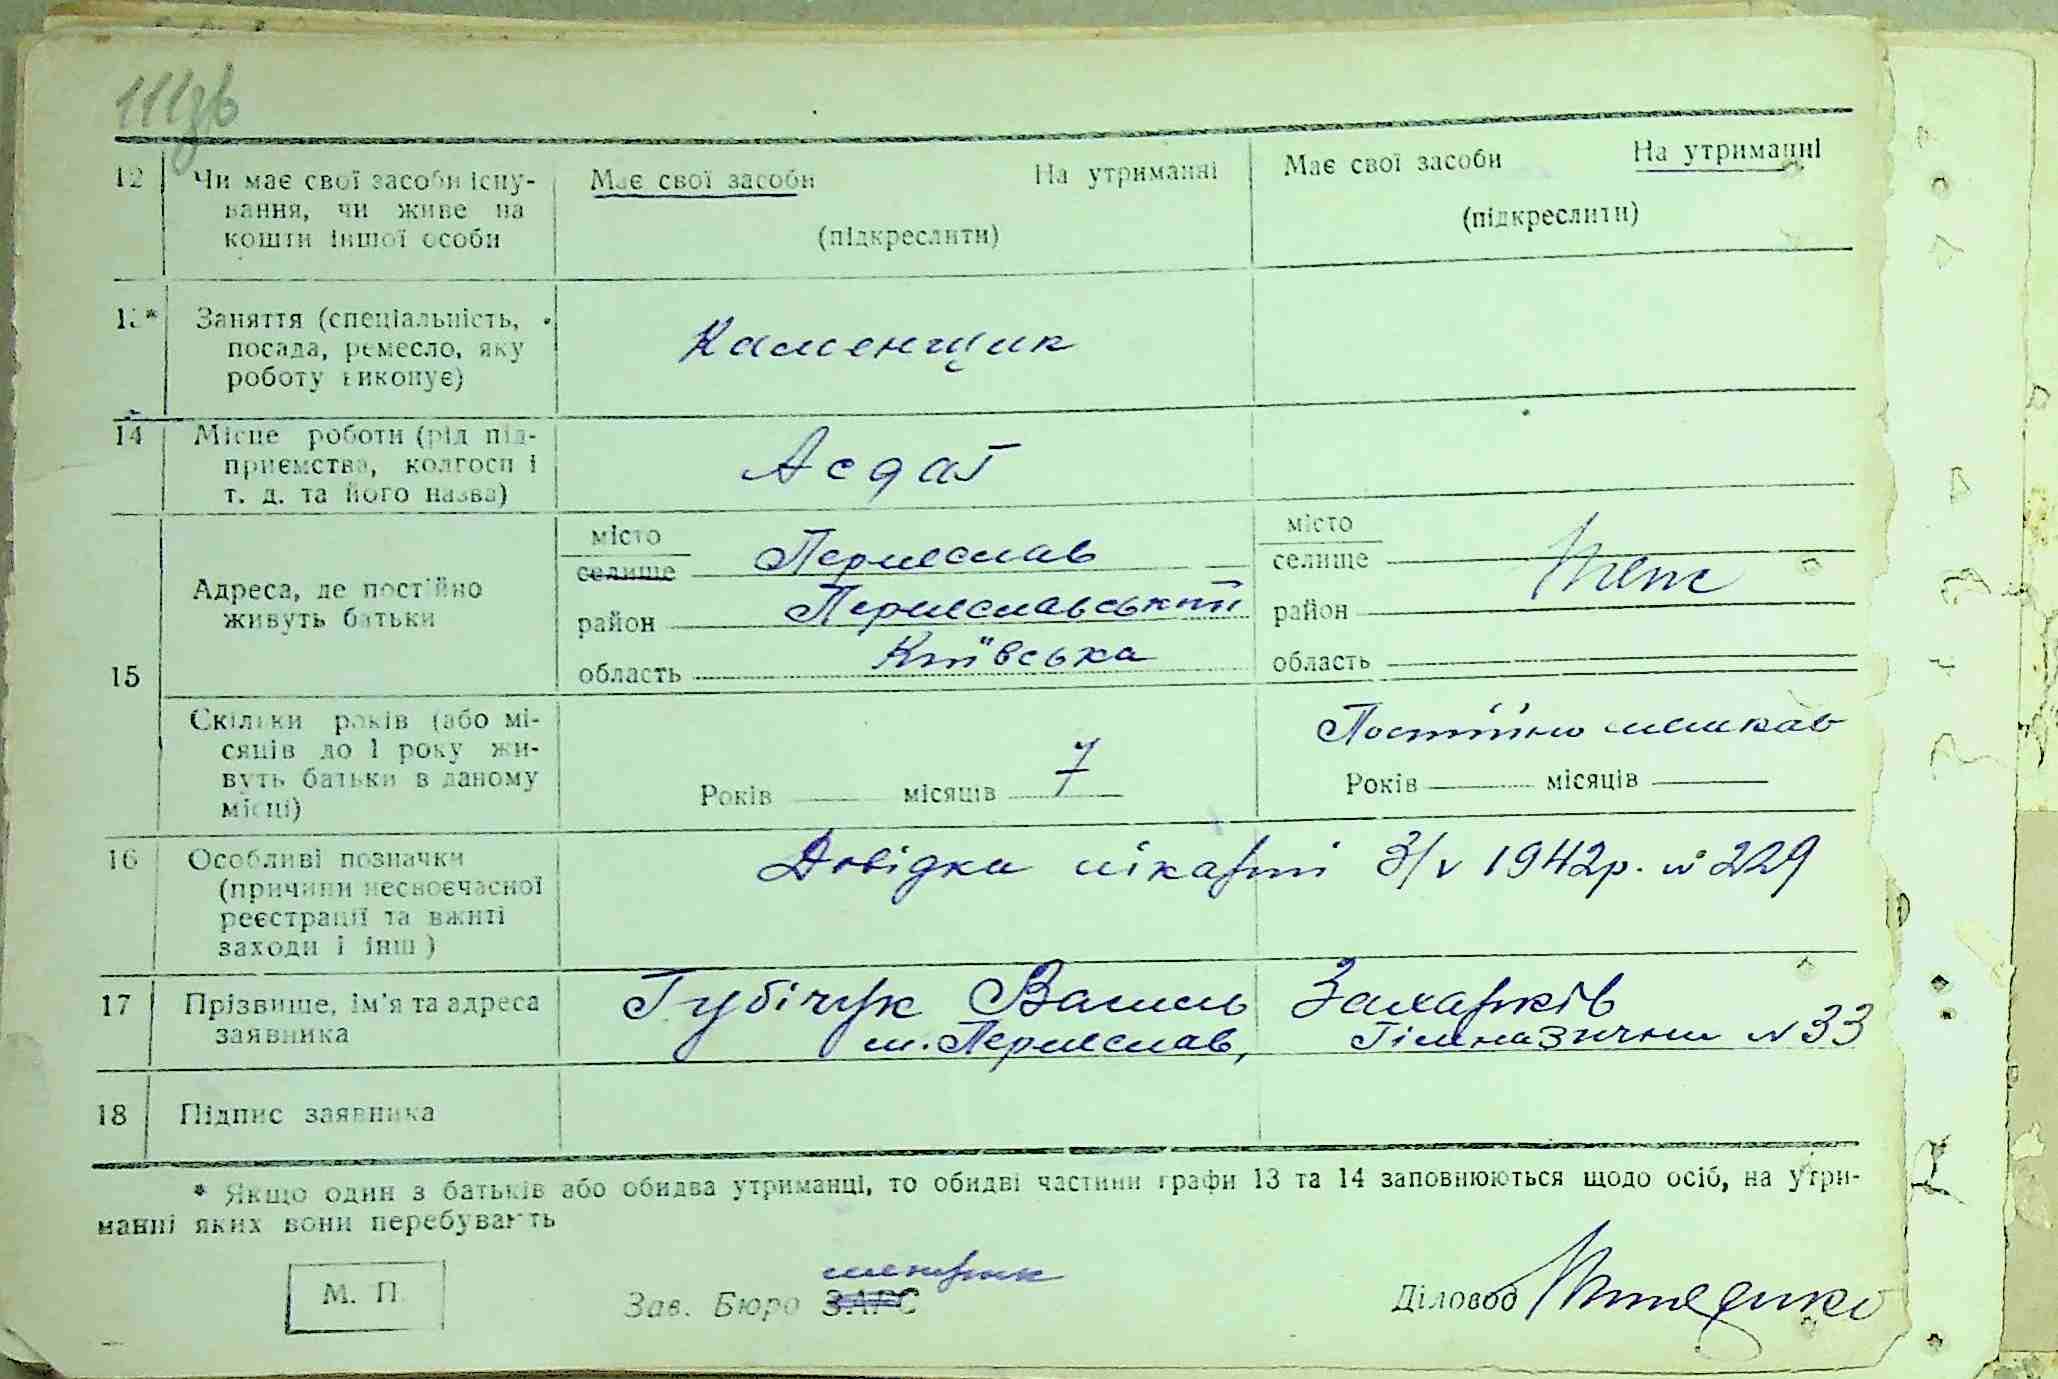 111зв
12 Чи має свої засоби існу- Має свої засоби На утриманні Має свої засоби На утриманні
вання, чи живе на (підкреслити) (підкреслити)
кошти іншої особи
13* Заняття (спеціальність, Каменщик
посада, ремесло, яку
роботу виконує)
14 Місце роботи (рід під- Асдат
приємства, колгосп і
т. д. та його назва)
15 Адреса, де постійно
живуть батьки
місто
селище Переяслав
район Переяславський
область Київська
місто
селище Теж
район
область
Скільки років (або мі- Постійно мешкав
сяців до 1 року жи-
вуть батьки в даному Років місяців 7 Років місяців
місці)
16 Особливі позначки Довідка лікарні 3/V 1942р. № 229
(причини несвоєчасної
реєстрації та вжиті
заходи і інш)
17 Прізвище, ім'я та адреса Губічук Василь Захарків
заявника м. Переяслав, Гімназична № 33
18 Підпис заявника
* Якщо один з батьків або обидва утриманці, то обидві частини графи 13 та 14 заповнюються щодо осіб, на утри-
манні яких вони перебувають
М. П. Зав. Бюро ЗАГС метрик Діловод